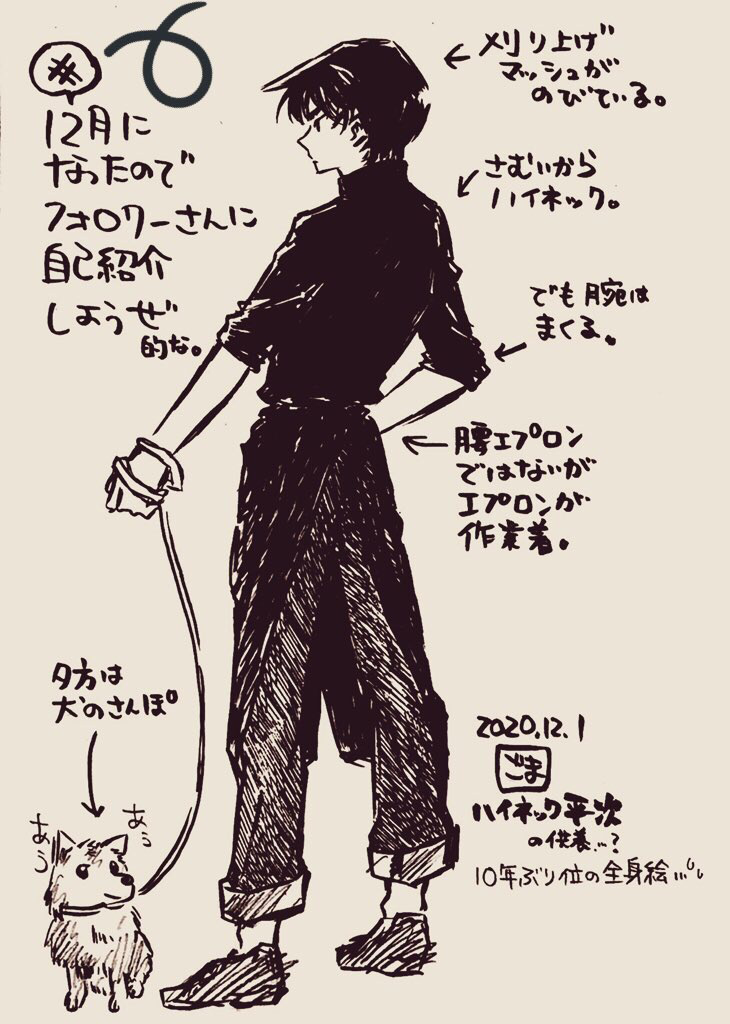 #
12月に
なったので
フォロワーさんに
自己紹介
しようぜ
的な。
刈り上げ
マッシュが
のびている。
さむいから
ハイネック。
でも腕は
まくる。
腰エプロン
ではないが
エプロンが
作業着。
夕方は
犬のさんぽ
あぅ
あぅ
2020.12.1
ごま
ハイネック平次
の供養…?
10年ぶり位の全身絵…